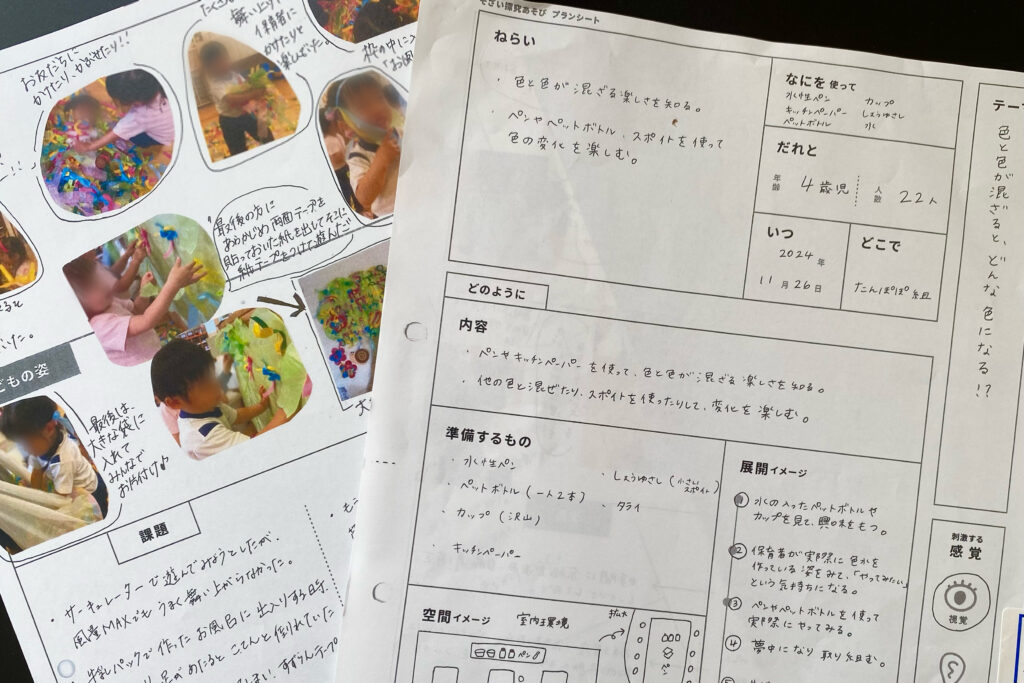 お友だちに
かけたり、かぶせたり!!
舞い上がり
保育者に
かけたりと
楽しんでいた。
枠の中に入
最後の方に
あらかじめ両面テープを
貼っておいた紙を出してそこに
紙テープをつけて遊んだ
どもの姿
最後は、
大きな袋に
入れて
みんなで
お片付け♪
課題
・サーキュレーターで遊んでみようとしたが、
風量MAXでもうまく舞い上がらなかった。
・牛乳パックで作ったお風呂に出入りする時、
そざい探究あそび プランシート
ねらい
・色と色が混ざる楽しさを知る。
・ペンやペットボトル、スポイトを使って
色の変化を楽しむ。
なにを使って
水性ペン カップ
キッチンペーパー しょうゆさし
ペットボトル 水
だれと
年齢 4歳児 人数 22人
いつ
2024年
11月26日
どこで
たんぽぽ組
テー
色と色が混ざると、どんな色になる!?
どのように
内容
・ペンやキッチンペーパーを使って、色と色が混ざる楽しさを知る。
・他の色と混ぜたり、スポイトを使ったりして、変化を楽しむ。
準備するもの
・水性ペン
・ペットボトル(一人2本)
・カップ(沢山)
・キッチンペーパー
・しょうゆさし(小さいスポイト)
・タライ
展開イメージ
1 水の入ったペットボトルや
カップを見て、興味をもつ。
2 保育者が実際に色水を
作っている姿をみて、「やってみたい」
という気持ちになる。
3 ペンやペットボトルを使って
実際にやってみる。
4 夢中になり取り組む。
5
刺激する
感覚
視覚
空間イメージ 室内環境
拡大
ペン
ペン